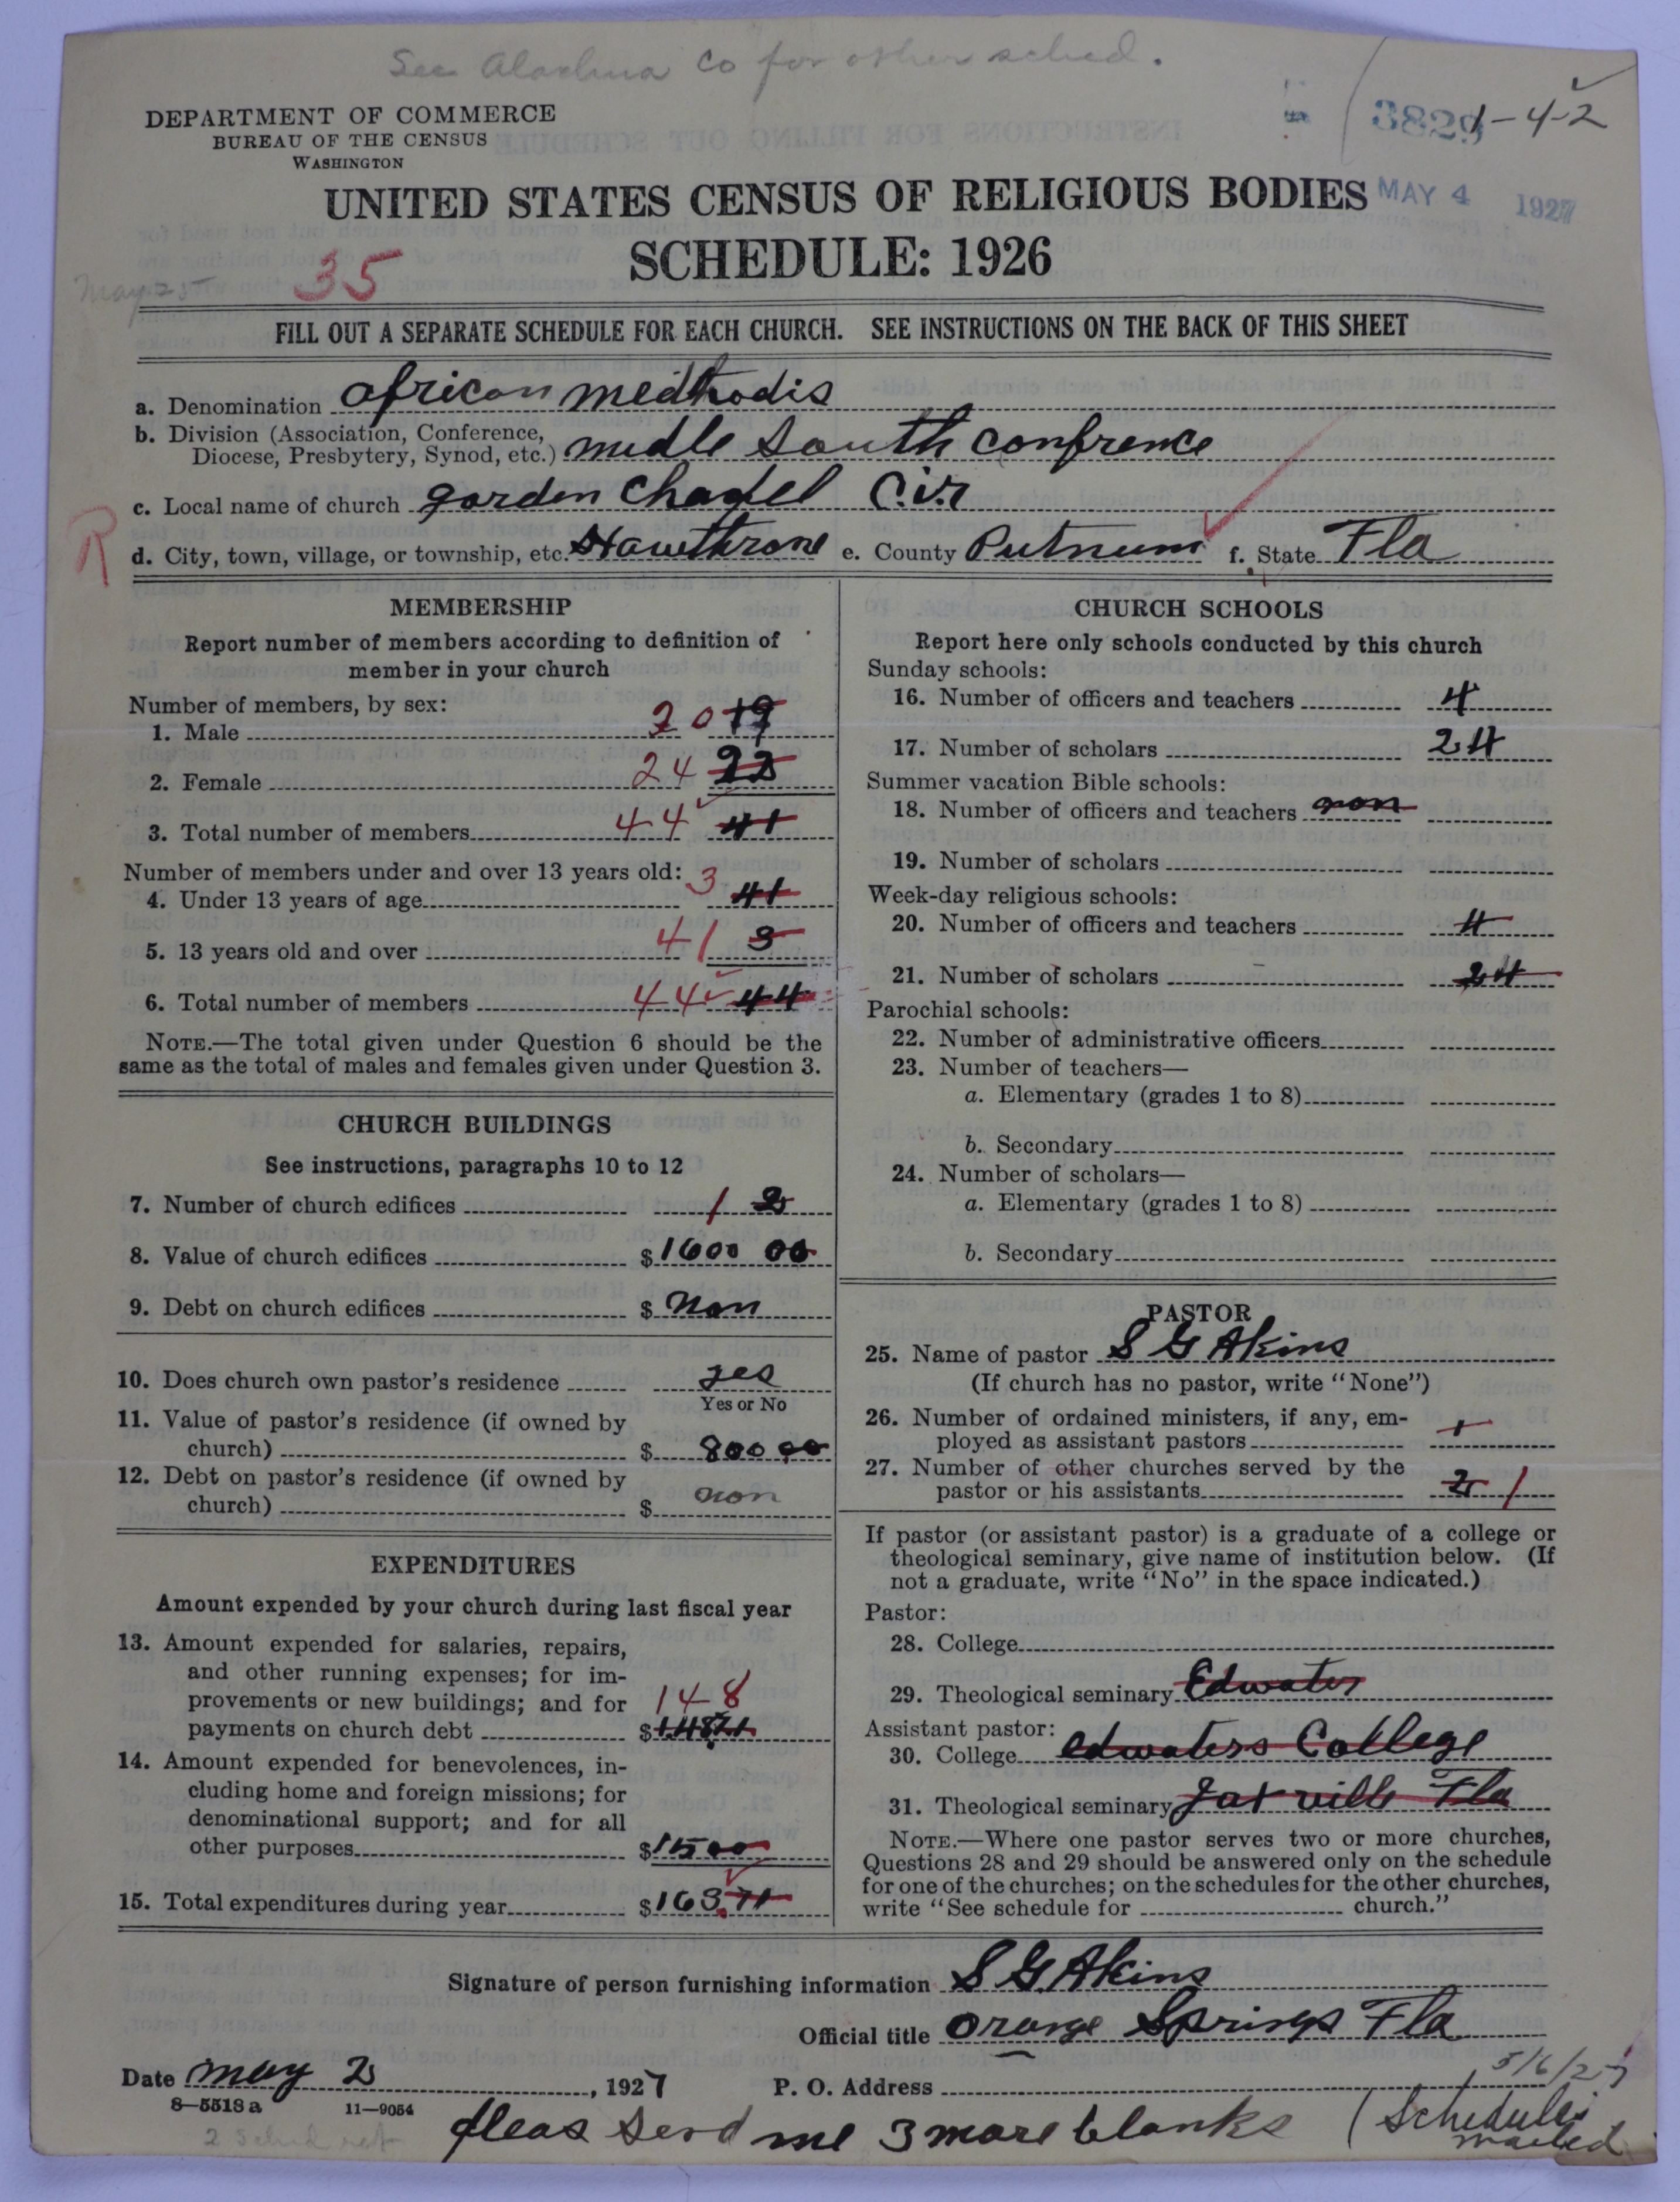 See Alachua Co for other sched.
DEPARTMENT OF COMMERCE
BUREAU OF THE CENSUS
WASHINGTON
3829 1-4-2
UNITED STATES CENSUS OF RELIGIOUS BODIES
MAY 4 1927
SCHEDULE: 1926
35
May 25
FILL OUT A SEPARATE SCHEDULE FOR EACH CHURCH. SEE INSTRUCTIONS ON THE BACK OF THIS SHEET
a. Denomination african medthodis
b. Division (Association, Conference, Diocese, Presbytery, Synod, etc.) midle south confrence
c. Local name of church gorden Chapel Cir
R
d. City, town, village, or township, etc. Hawthrone e. County Putnum f. State Fla
MEMBERSHIP
Report number of members according to definition of
member in your church
Number of members, by sex:
1. Male 20 19
2. Female 24 22
3. Total number of members 44 41
Number of members under and over 13 years old:
4. Under 13 years of age 3 41
5. 13 years old and over 41 3
6. Total number of members 44 44
NOTE.—The total given under Question 6 should be the
same as the total of males and females given under Question 3.
CHURCH BUILDINGS
See instructions, paragraphs 10 to 12
7. Number of church edifices 1 2
8. Value of church edifices $1600 00
9. Debt on church edifices $ non
10. Does church own pastor's residence yes
Yes or No
11. Value of pastor's residence (if owned by
church) $ 800 00
12. Debt on pastor's residence (if owned by
church) $ non
EXPENDITURES
Amount expended by your church during last fiscal year
13. Amount expended for salaries, repairs,
and other running expenses; for im-
provements or new buildings; and for 148
payments on church debt $148.71
14. Amount expended for benevolences, in-
cluding home and foreign missions; for
denominational support; and for all
other purposes $15 00
15. Total expenditures during year $163.71
CHURCH SCHOOLS
Report here only schools conducted by this church
Sunday schools:
16. Number of officers and teachers 4
17. Number of scholars 24
Summer vacation Bible schools:
18. Number of officers and teachers non
19. Number of scholars
Week-day religious schools:
20. Number of officers and teachers 4
21. Number of scholars 24
Parochial schools:
22. Number of administrative officers
23. Number of teachers—
a. Elementary (grades 1 to 8)
b. Secondary
24. Number of scholars—
a. Elementary (grades 1 to 8)
b. Secondary
PASTOR
25. Name of pastor S G Akins
(If church has no pastor, write "None")
26. Number of ordained ministers, if any, em-
ployed as assistant pastors 1
27. Number of other churches served by the
pastor or his assistants 2 1
If pastor (or assistant pastor) is a graduate of a college or
theological seminary, give name of institution below. (If
not a graduate, write "No" in the space indicated.)
Pastor:
28. College
29. Theological seminary Edwater
Assistant pastor:
30. College edwaters College
31. Theological seminary Jaxville Fla
NOTE.—Where one pastor serves two or more churches,
Questions 28 and 29 should be answered only on the schedule
for one of the churches; on the schedules for the other churches,
write "See schedule for church."
Signature of person furnishing information S G Akins
Official title Orange Springs Fla
Date may 2, 1927 P. O. Address
5/6/27
8—5518 a 11—9054
pleas send me 3 more blanks
(Schedules
mailed